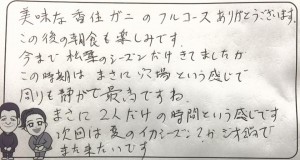 美味な香住ガニのフルコースありがとうございます。
この後の朝食も楽しみです。
今まで松葉のシーズンだけきてましたが
この時期はまさに穴場という感じで
周りも静かで最高ですね。
まさに2人だけの時間という感じです
次回は夏のイカシーズン?か
また来たいです